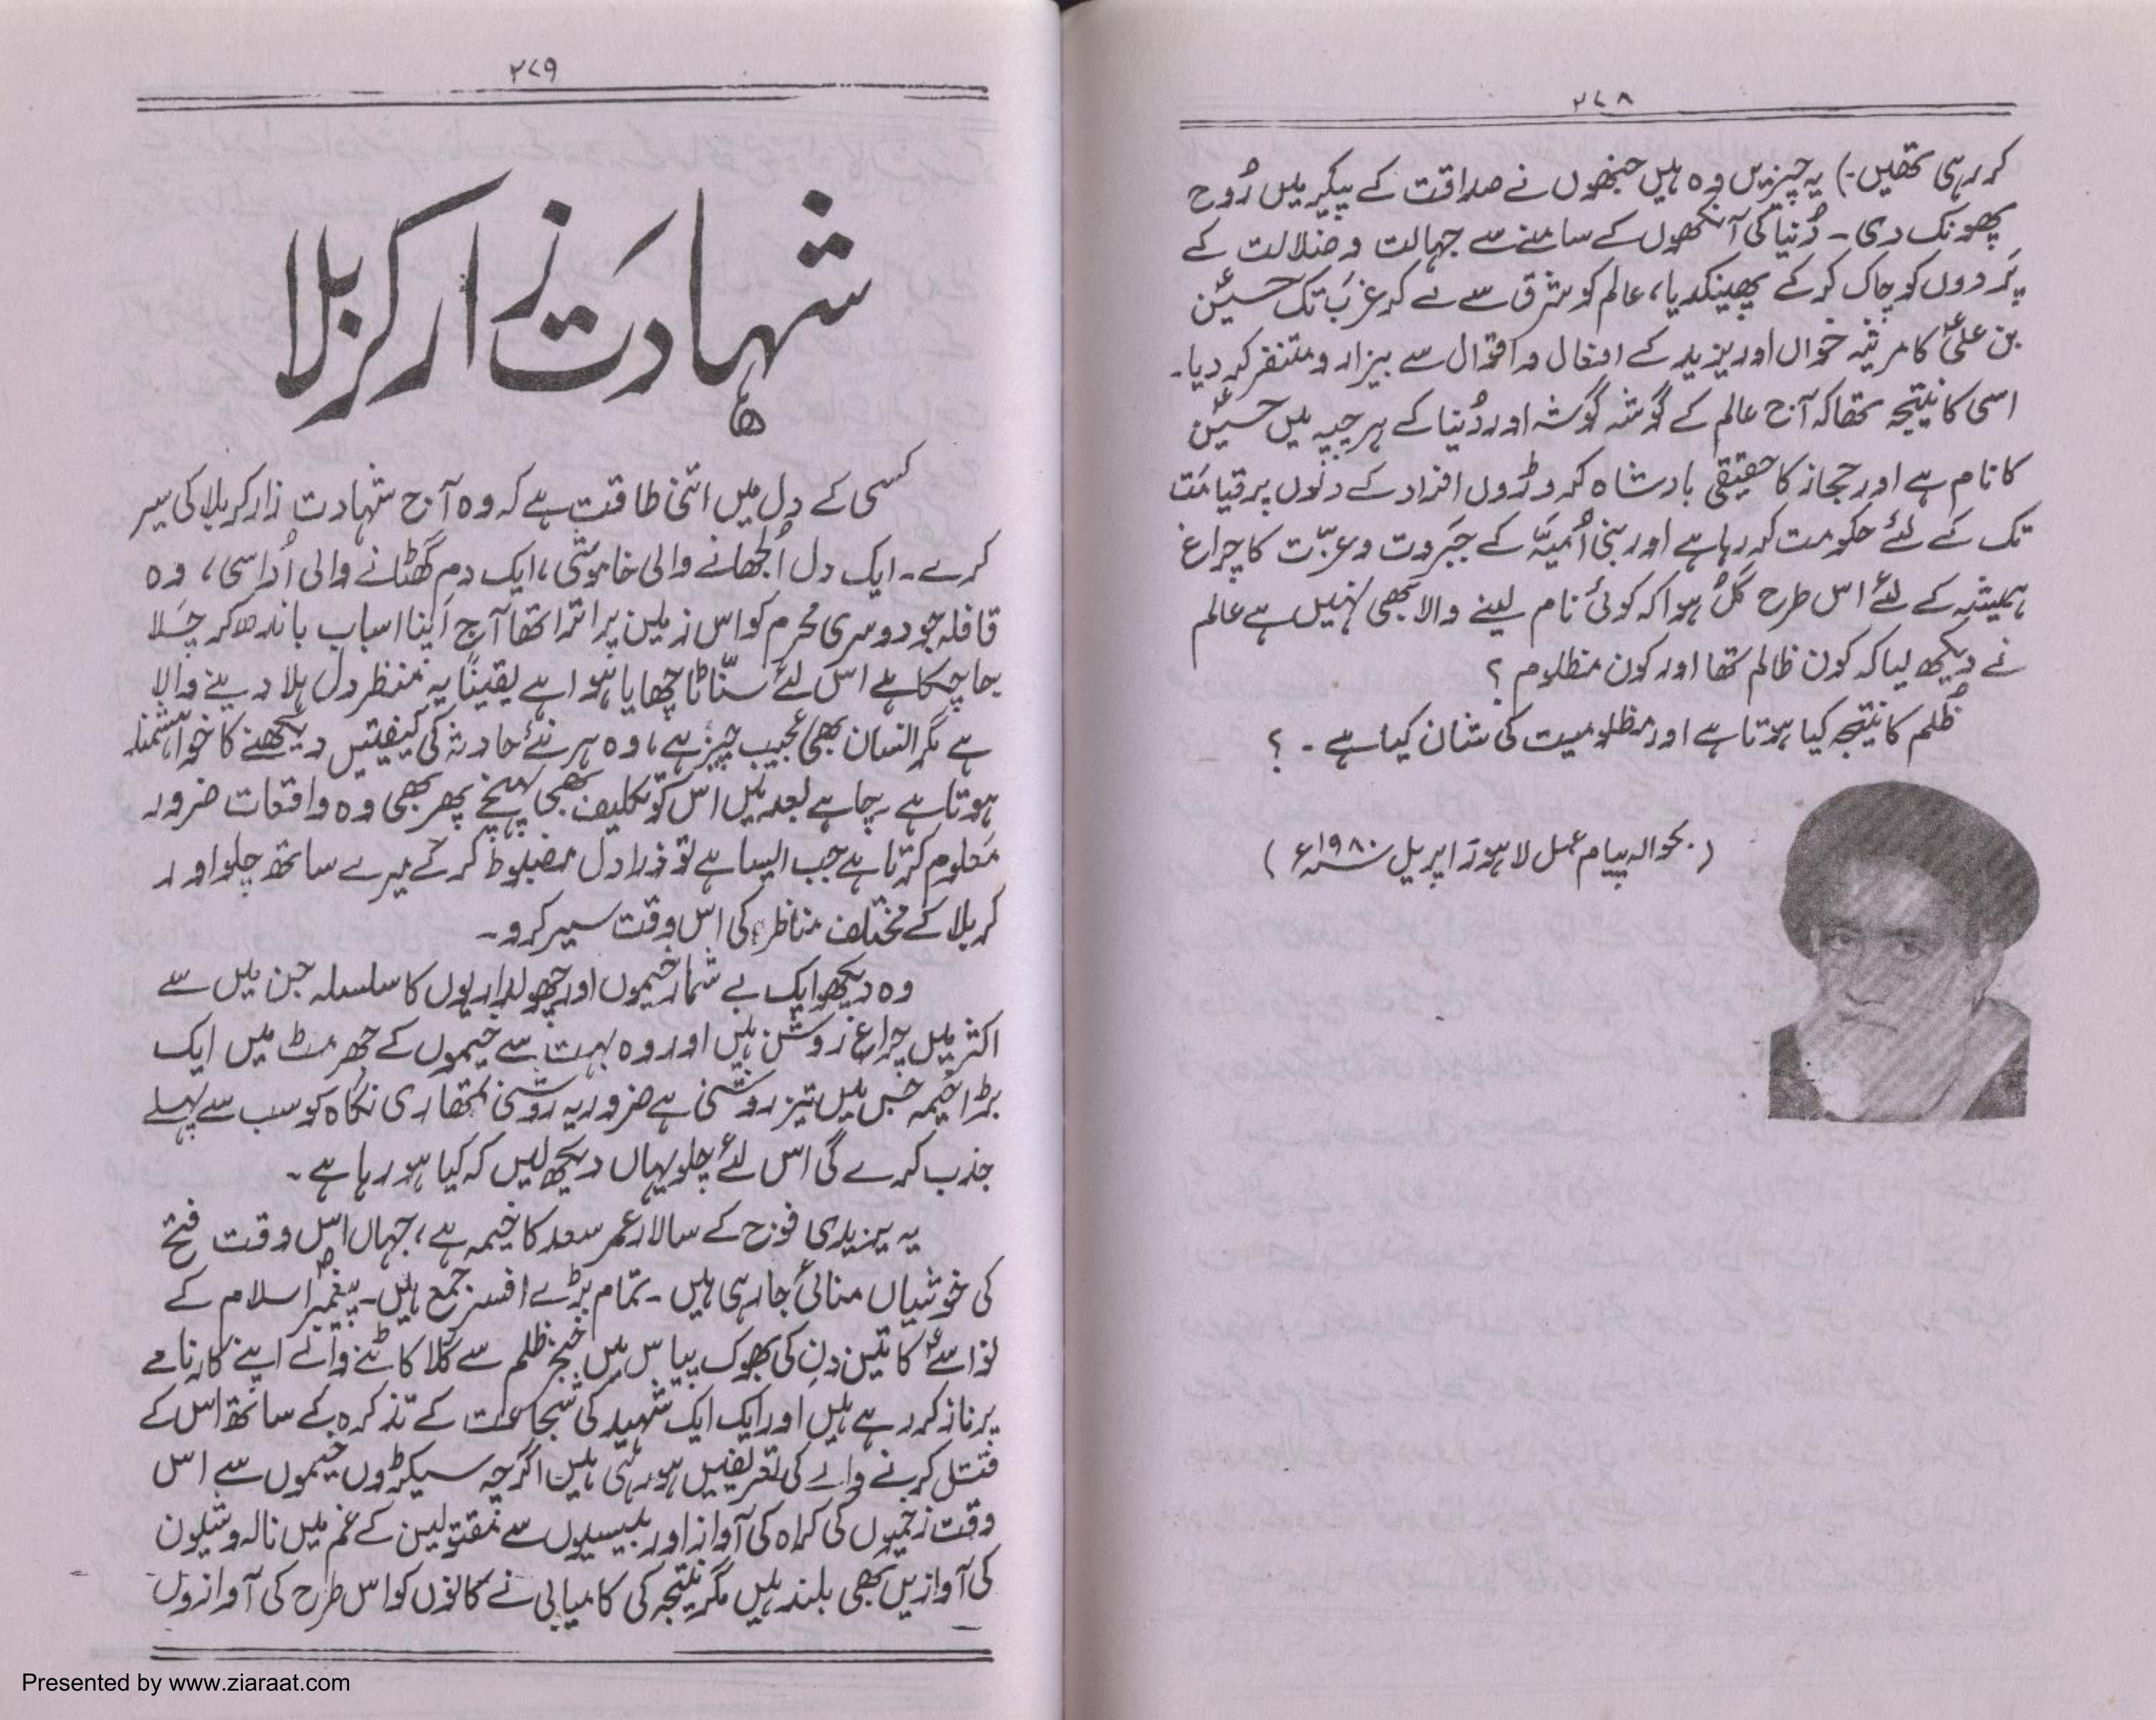 ۲۷۸
کر رہی تھیں۔) یہ چیزیں وہ ہیں جنھوں نے صداقت کے پیکر میں رُوح
پھونک دی۔ دُنیا کی آنکھوں کے سامنے سے جہالت و ضلالت کے
پَردوں کو چاک کر کے پھینکدیا، عالم کو شرق سے لے کر غرب تک حسینؑ
بن علیؑ کا مرثیہ خواں اور یزید کے افعال و اقوال سے بیزار و متنفر کر دیا۔
اسی کا نتیجہ تھا کہ آج عالم کے گوشہ گوشہ اور دُنیا کے ہر چپہ میں حسینؑ
کا نام ہے اور حجاز کا حقیقی بادشاہ کروڑوں افراد کے دلوں پر قیامت
تک کے لئے حکومت کر رہا ہے اور بنی اُمیّہ کے جَبَروت و عزّت کا چراغ
ہمیشہ کے لئے اس طرح گُل ہوا کہ کوئی نام لینے والا بھی نہیں ہے عالم
نے دیکھ لیا کہ کون ظالم تھا اور کون مظلوم ؟
ظُلم کا نتیجہ کیا ہوتا ہے اور مظلومیت کی شان کیا ہے۔ ؟
(بحوالہ پیام عمل لاہور اپریل ۱۹۸۰ء)
۲۷۹
شہادت زارِ کربلا
کسی کے دل میں اتنی طاقت ہے کہ وہ آج شہادت زار کربلا کی سیر
کرے۔ ایک دل اُلجھانے والی خاموشی، ایک دم گھٹانے والی اُداسی، وہ
قافلہ جو دوسری محرم کو اس زمین پر اترا تھا آج اپنا اسباب باندھ کر چَلا
جا چکا ہے اس لئے سنّاٹا چھایا ہوا ہے یقیناً یہ منظر دل ہلا دینے والا
ہے مگر انسان بھی عجیب چیز ہے، وہ ہر نئے حادثہ کی کیفیتیں دیکھنے کا خواہشمند
ہوتا ہے چاہے بعد میں اس کو تکلیف بھی پہنچے پھر بھی وہ واقعات ضرور
معلوم کرتا ہے جب ایسا ہے تو ذرا دل مضبوط کر کے میرے ساتھ چلو اور
کربلا کے مختلف مناظر کی اس وقت سیر کرو۔
وہ دیکھو ایک بے شمار خیموں اور چھولداریوں کا سلسلہ جن میں سے
اکثر میں چراغ روشن ہیں اور وہ بہت سے خیموں کے جھرمٹ میں ایک
بڑا خیمہ جس میں تیز روشنی ہے ضرور یہ روشنی تمھاری نگاہ کو سب سے پہلے
جذب کرے گی اس لئے چلو یہاں دیکھ لیں کہ کیا ہو رہا ہے۔
یہ یزیدی فوج کے سالار عمر سعد کا خیمہ ہے، جہاں اس وقت فتح
کی خوشیاں منائی جا رہی ہیں۔ تمام بڑے افسر جمع ہیں۔ پیغمبرؐ اسلام کے
نواسےؑ کا تین دن کی بھوک پیاس میں خنجر ظلم سے گلا کاٹنے والے اپنے کارنامے
پر ناز کر رہے ہیں اور ایک ایک شہید کی شجاعت کے تذکرہ کے ساتھ اس کے
قتل کرنے والے کی تعریفیں ہو رہی ہیں اگرچہ سیکڑوں خیموں سے اس
وقت زخمیوں کی کراہ کی آواز اور بیسیوں سے مقتولین کے غم میں نالہ و شیون
کی آوازیں بھی بلند ہیں مگر نتیجہ کی کامیابی نے کانوں کو اس طرح کی آوازوں
Presented by www.ziaraat.com